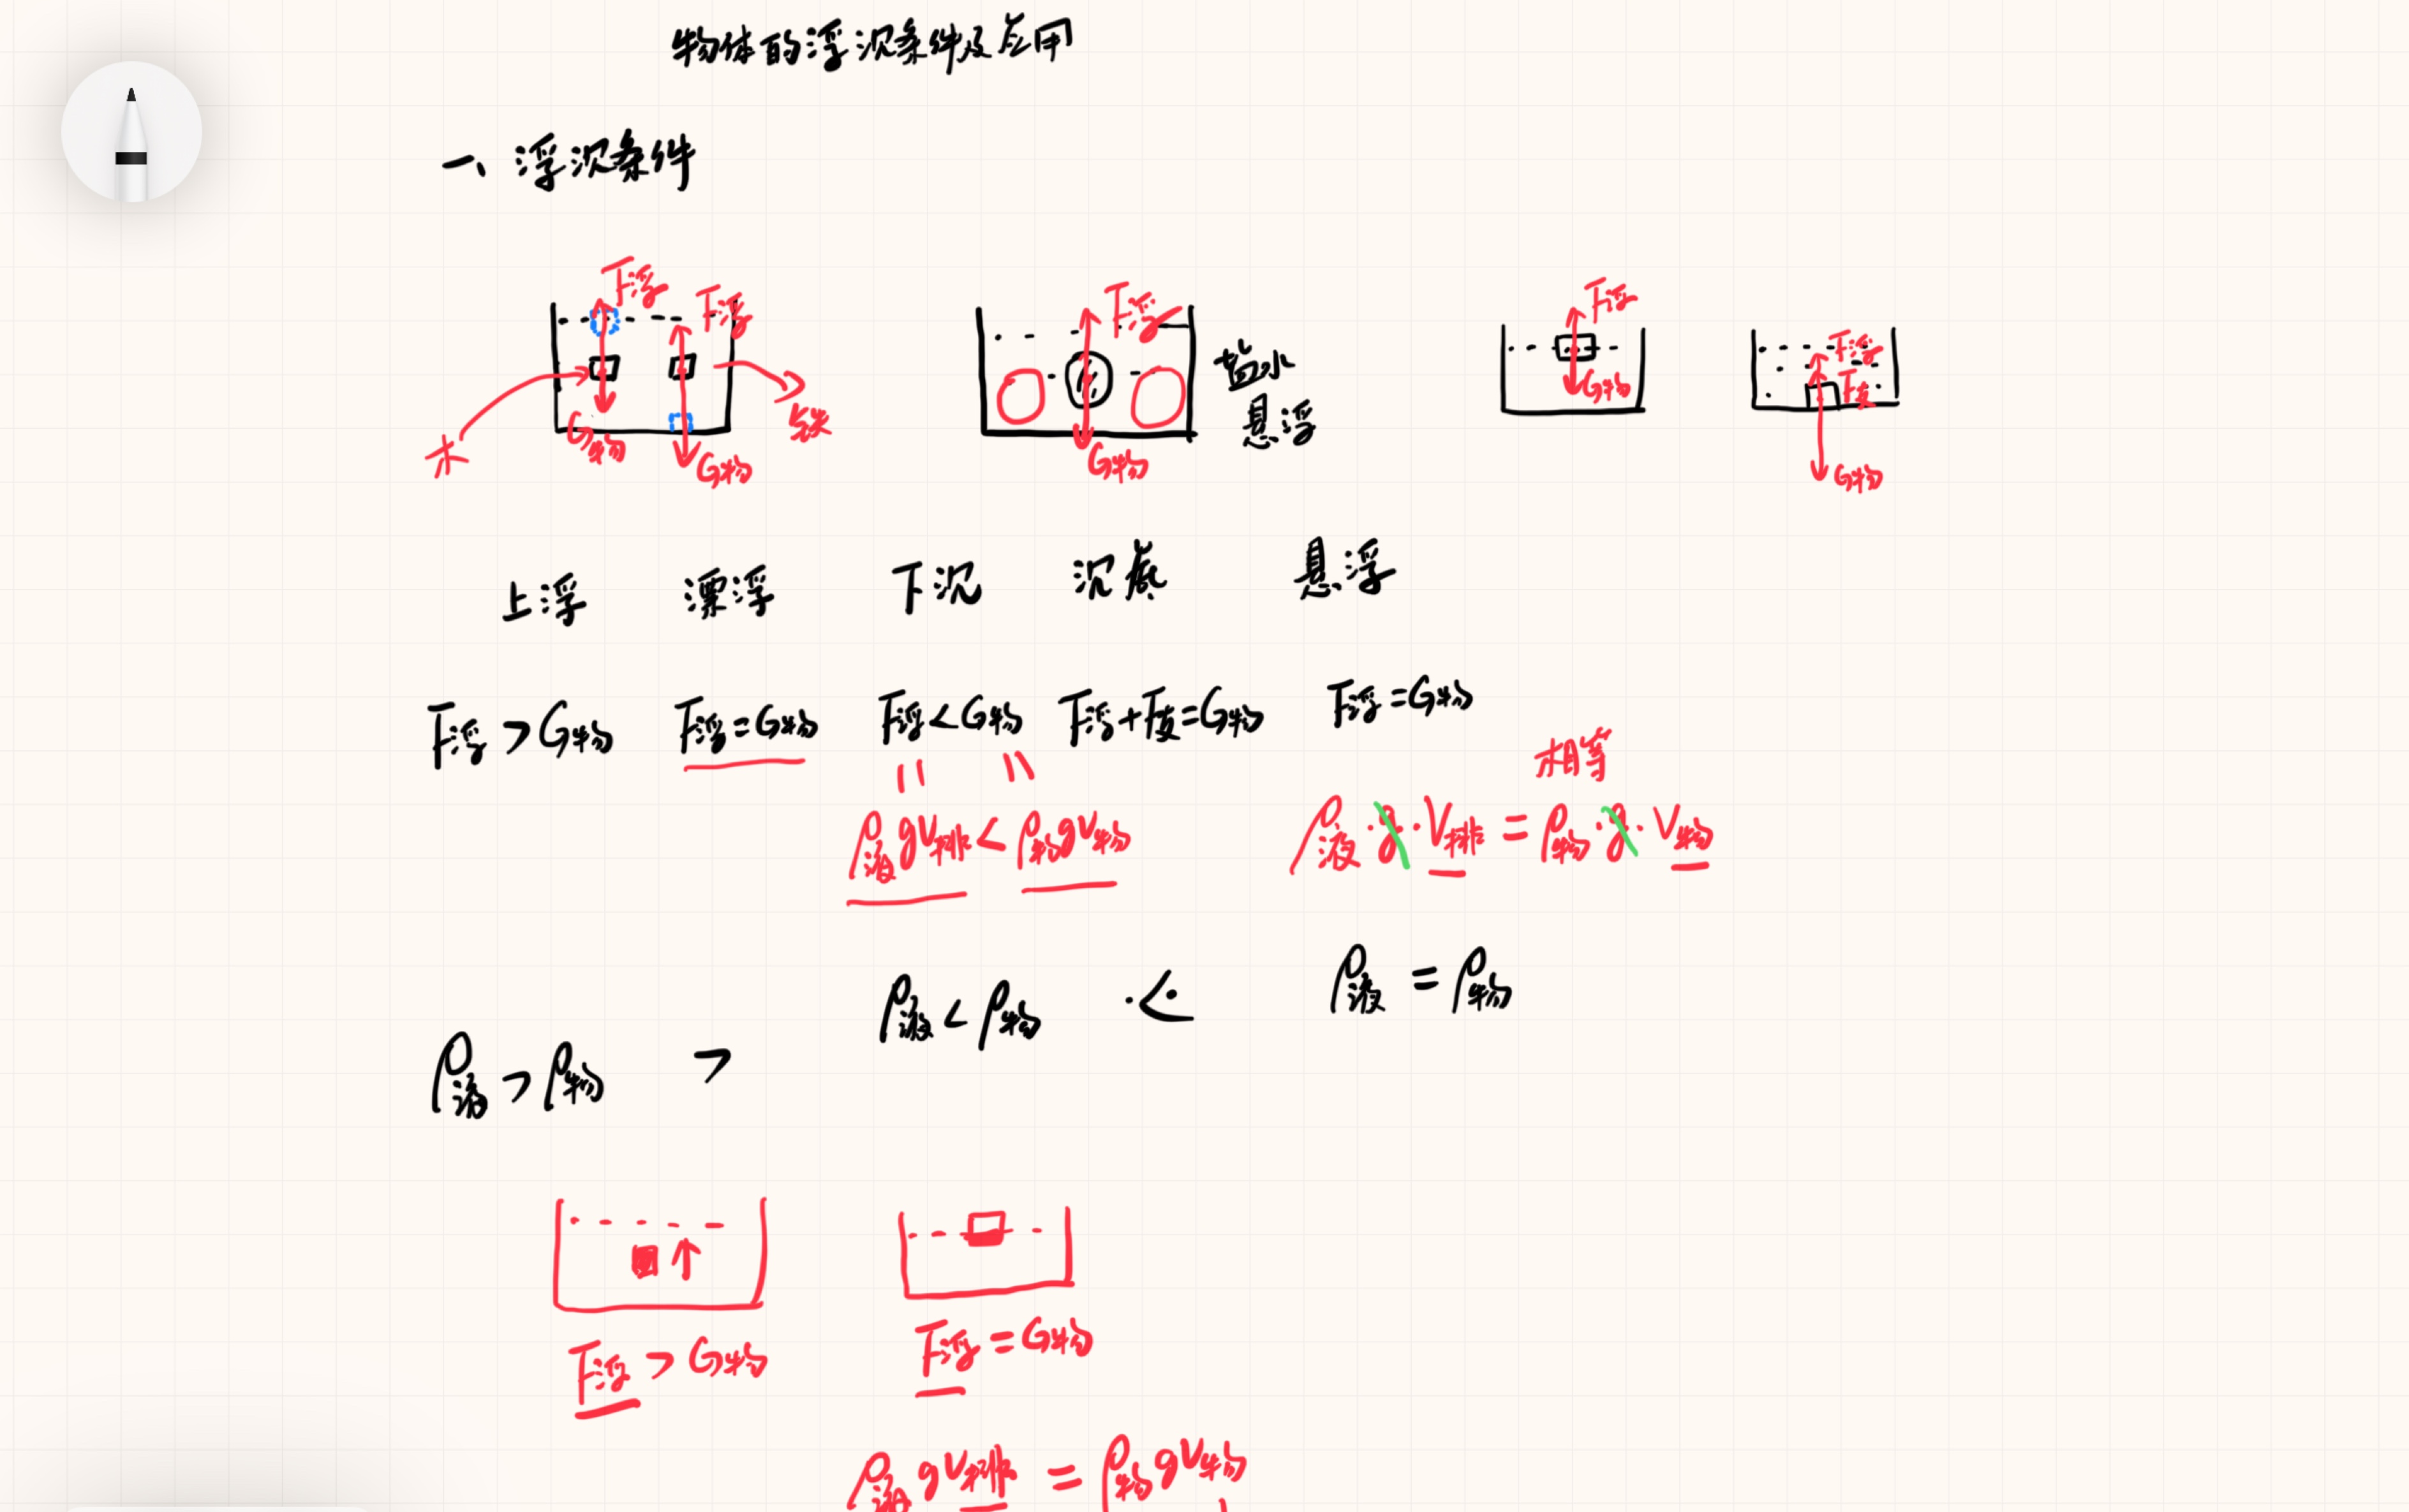 物体的浮沉条件及应用
一、浮沉条件
F浮 F浮 F浮 F浮 F浮
木 G物 G物 铁 G物 盐水 G物 F支 G物
悬浮
上浮 漂浮 下沉 沉底 悬浮
F浮>G物 F浮=G物 F浮<G物 F浮+F支=G物 F浮=G物
相等
ρ液gV排<ρ物gV物 ρ液·g·V排=ρ物·g·V物
ρ液<ρ物 < ρ液=ρ物
ρ液>ρ物 >
F浮>G物 F浮=G物
ρ液gV排=ρ物gV物